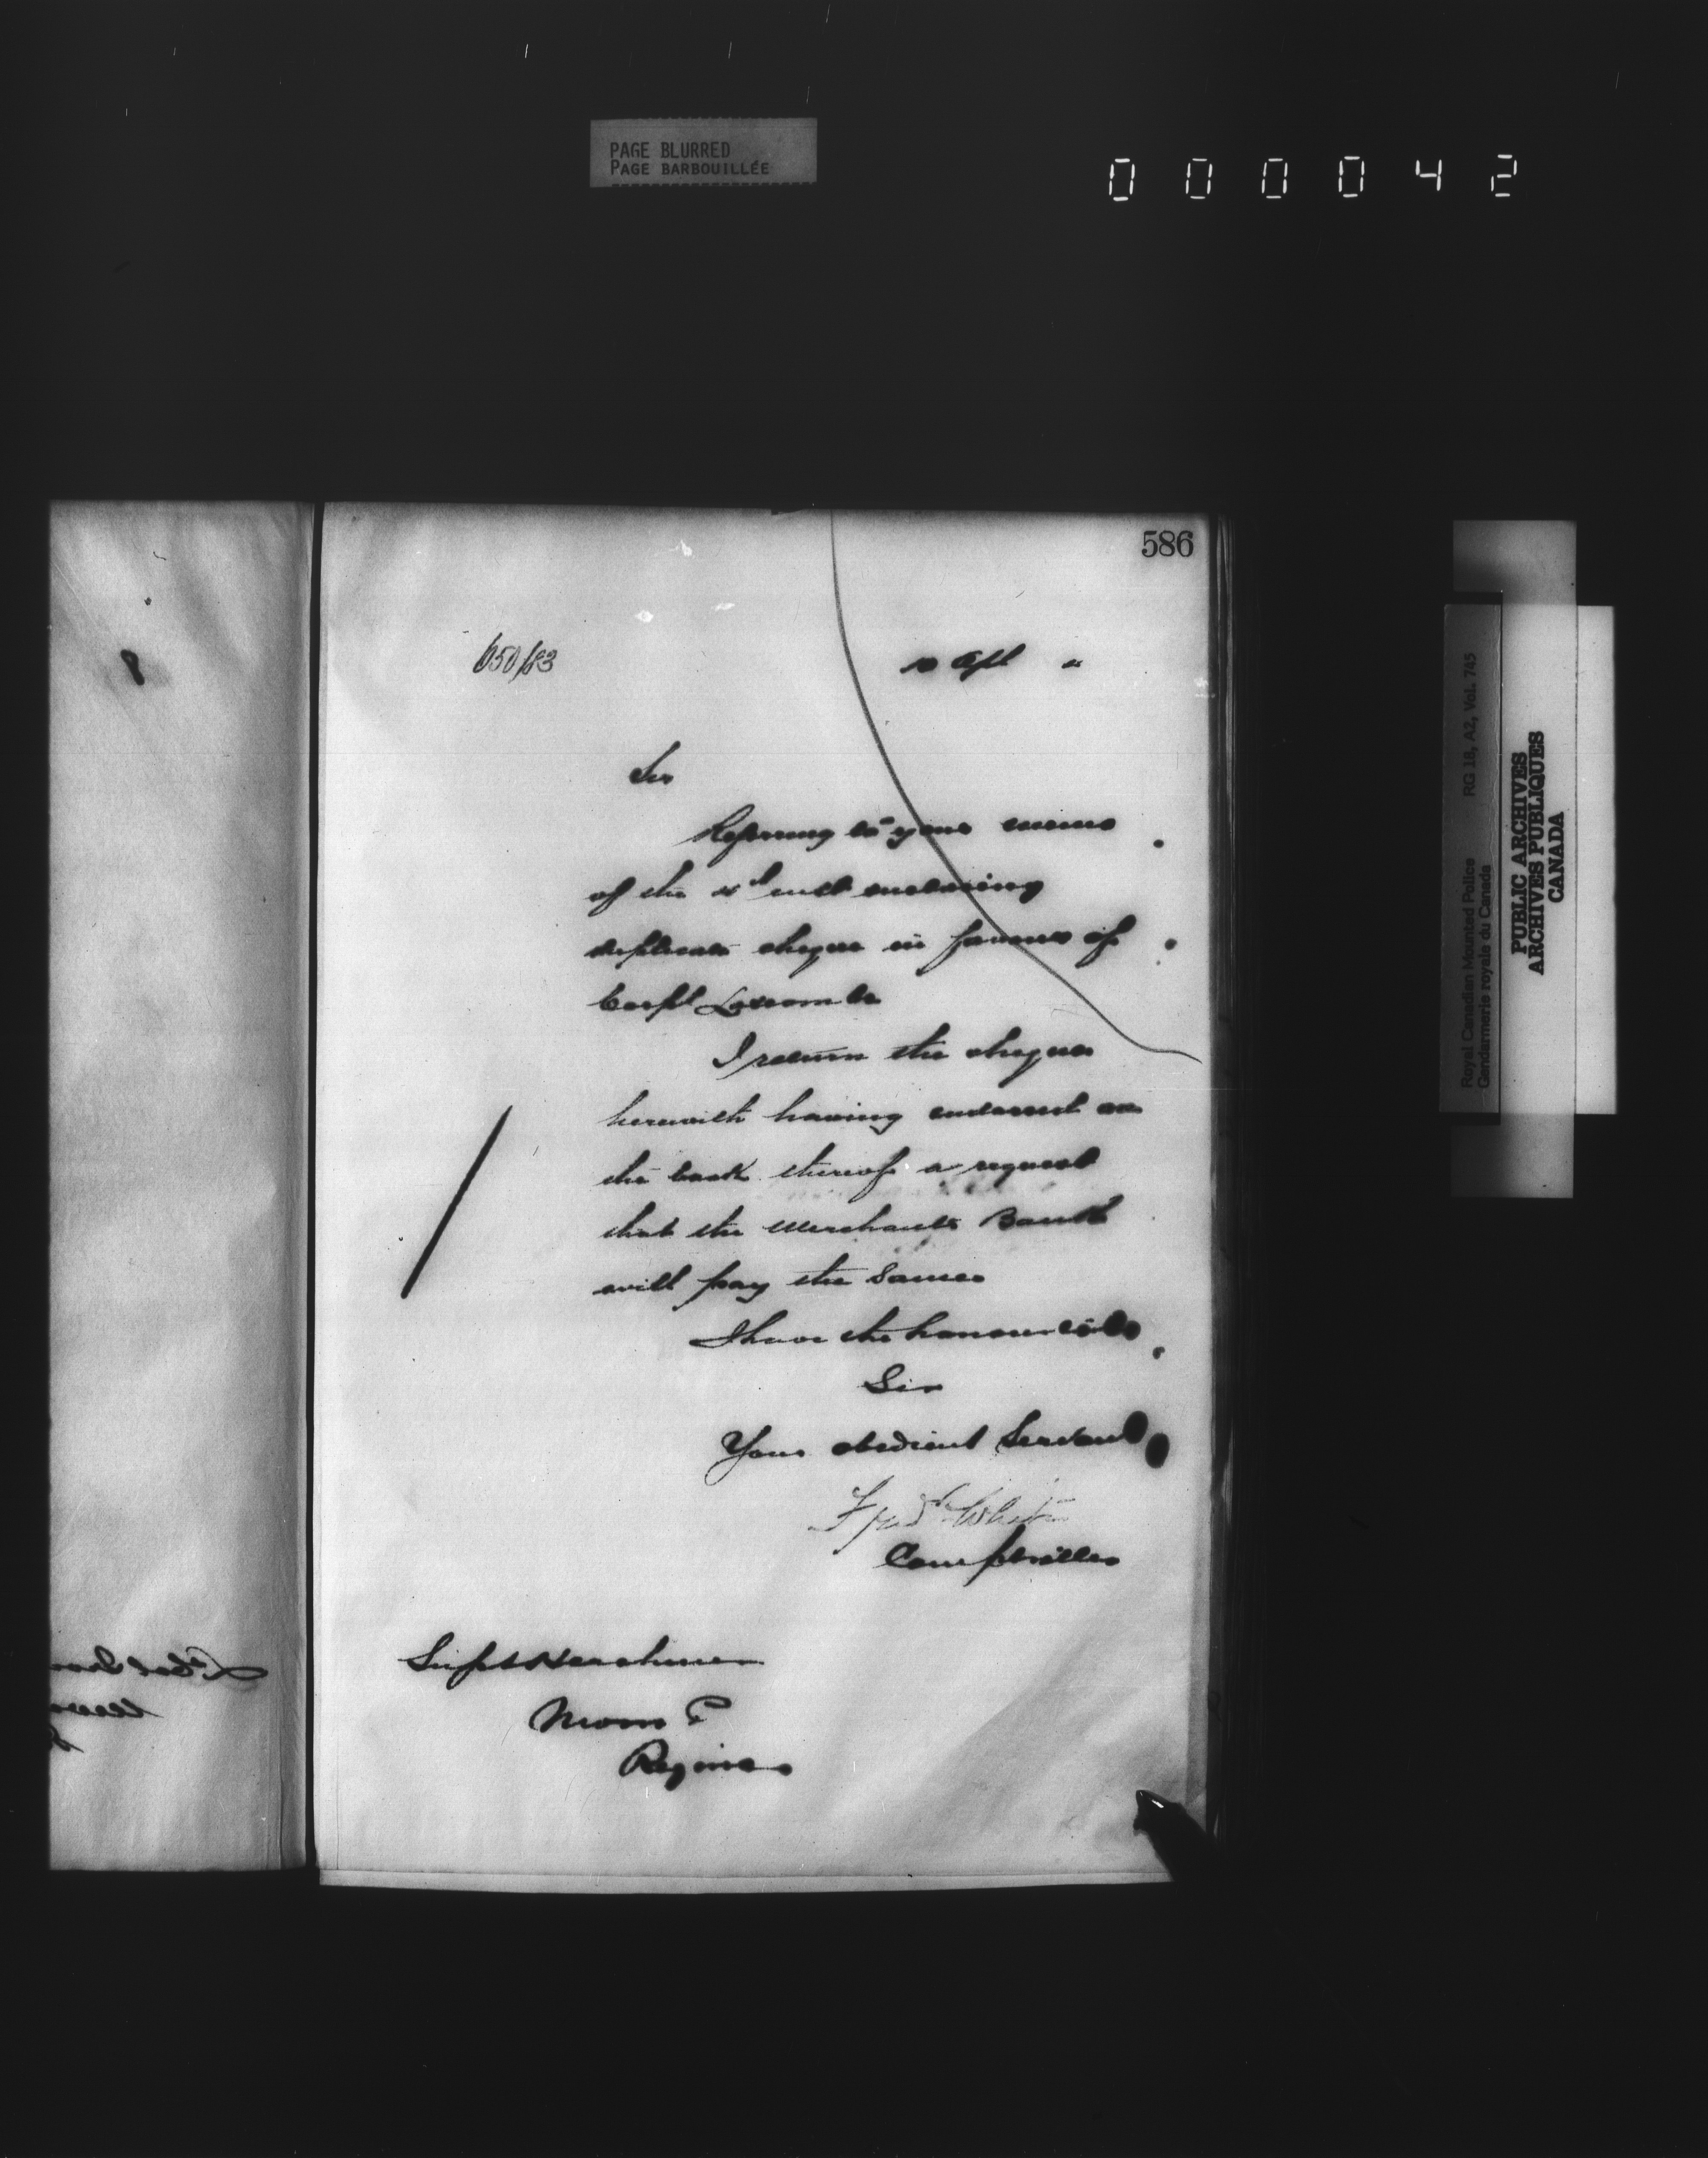 PAGE BLURRED
PAGE BARBOUILLÉE
000042
586
650/83
10 Apl "
Sir
Referring to your memo
of the inst enclosing
duplicate cheque in favour of
Corpl
I return the cheque
herewith having endorsed on
the back thereof a request
that the Merchants Bank
will pay the same
I have the honour to be
Sir
Your obedient Servant
Fred White
Comptroller
Supt Herchmer
N W M P
Regina
Royal Canadian Mounted Police RG 18, A2, Vol. 745
Gendarmerie royale du Canada
PUBLIC ARCHIVES
ARCHIVES PUBLIQUES
CANADA